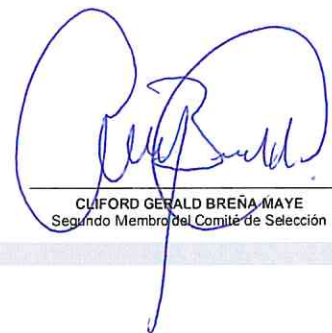 CLIFORD GERALD BREÑA MAYE
Segundo Membro del Comité de Selección